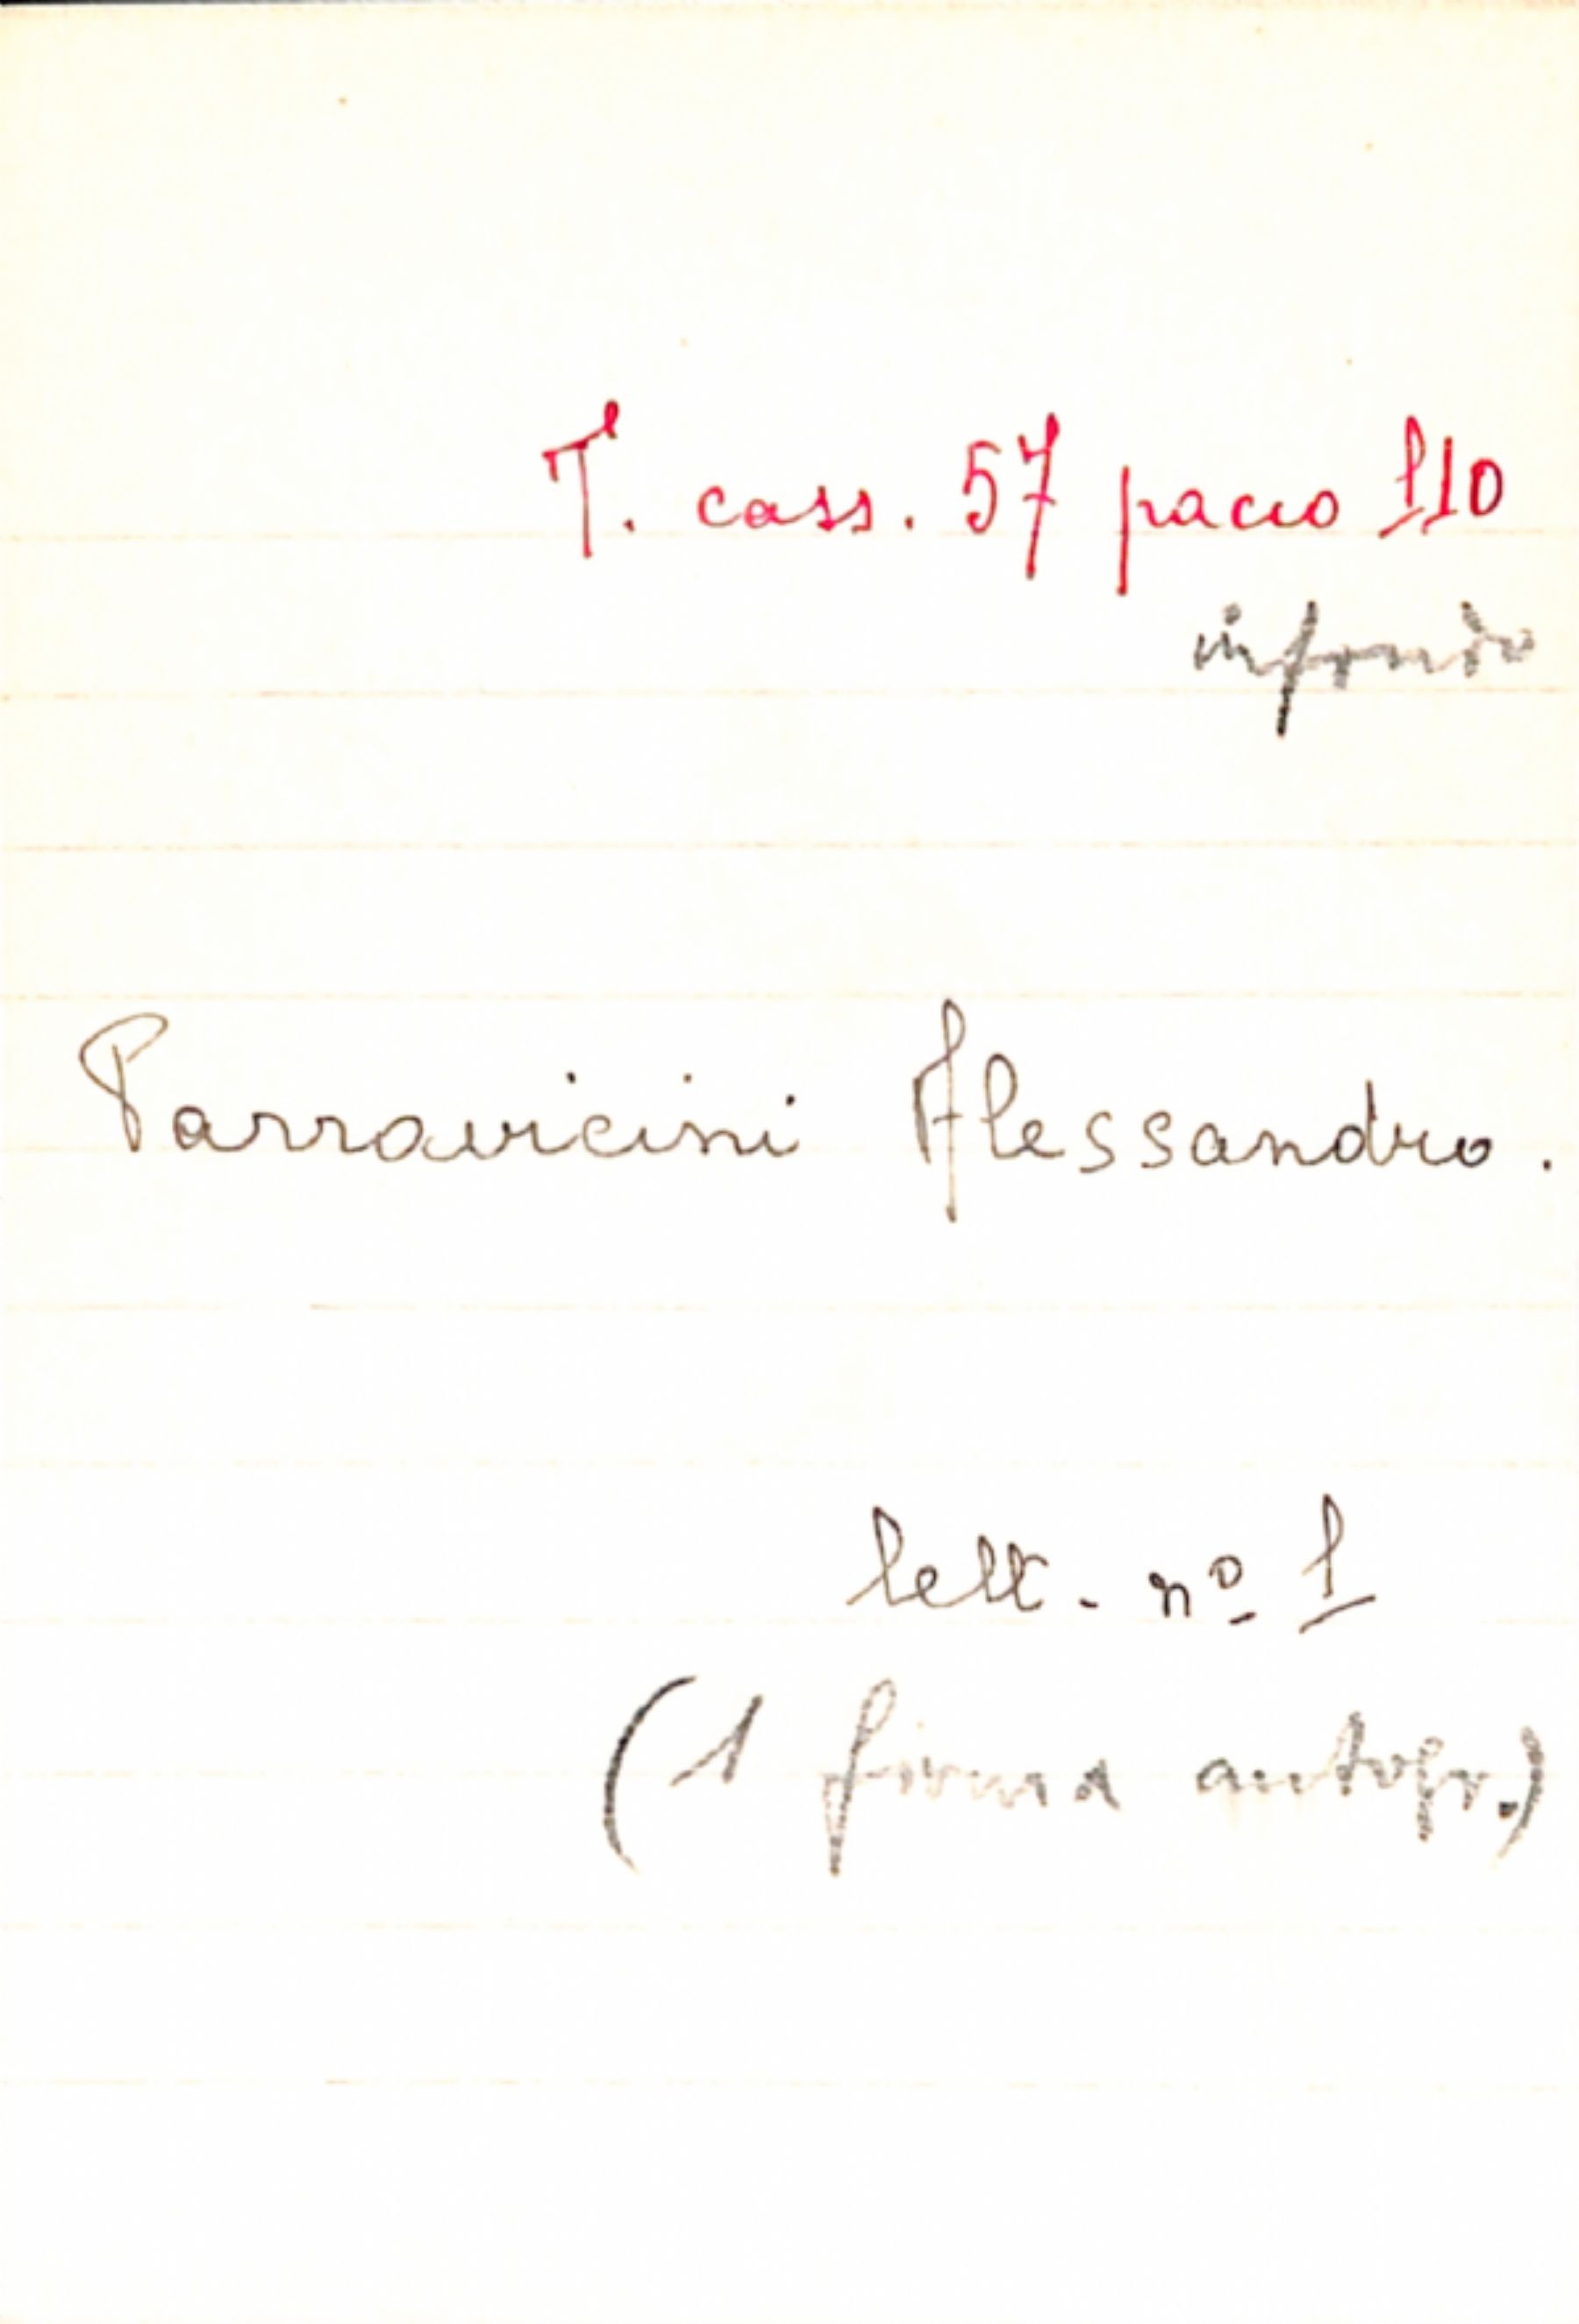 T. cass. 57 pacco 110
in fondo
Parravicini Alessandro.
lett. nº 1
(1 firma autogr.)